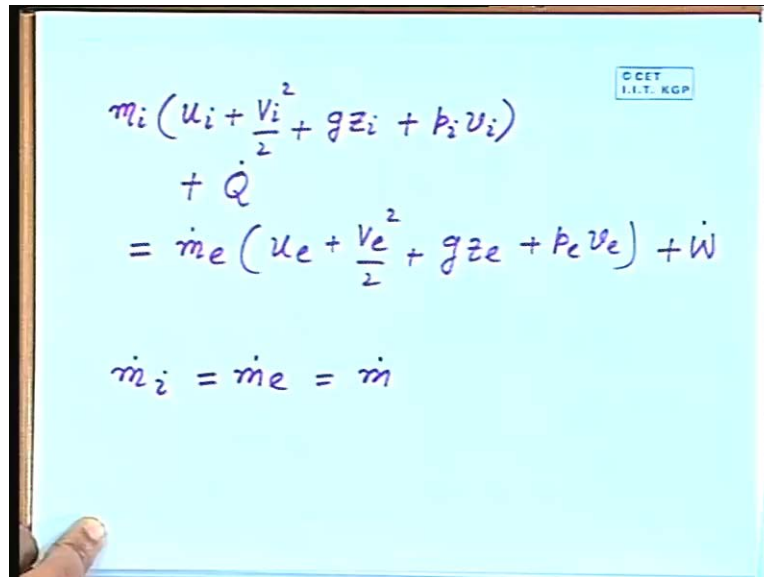 © CET
I.I.T. KGP
mᵢ (uᵢ + Vᵢ²/2 + gzᵢ + pᵢvᵢ)
+ Q̇
= ṁₑ (uₑ + Vₑ²/2 + gzₑ + pₑvₑ) + Ẇ
ṁᵢ = ṁₑ = ṁ